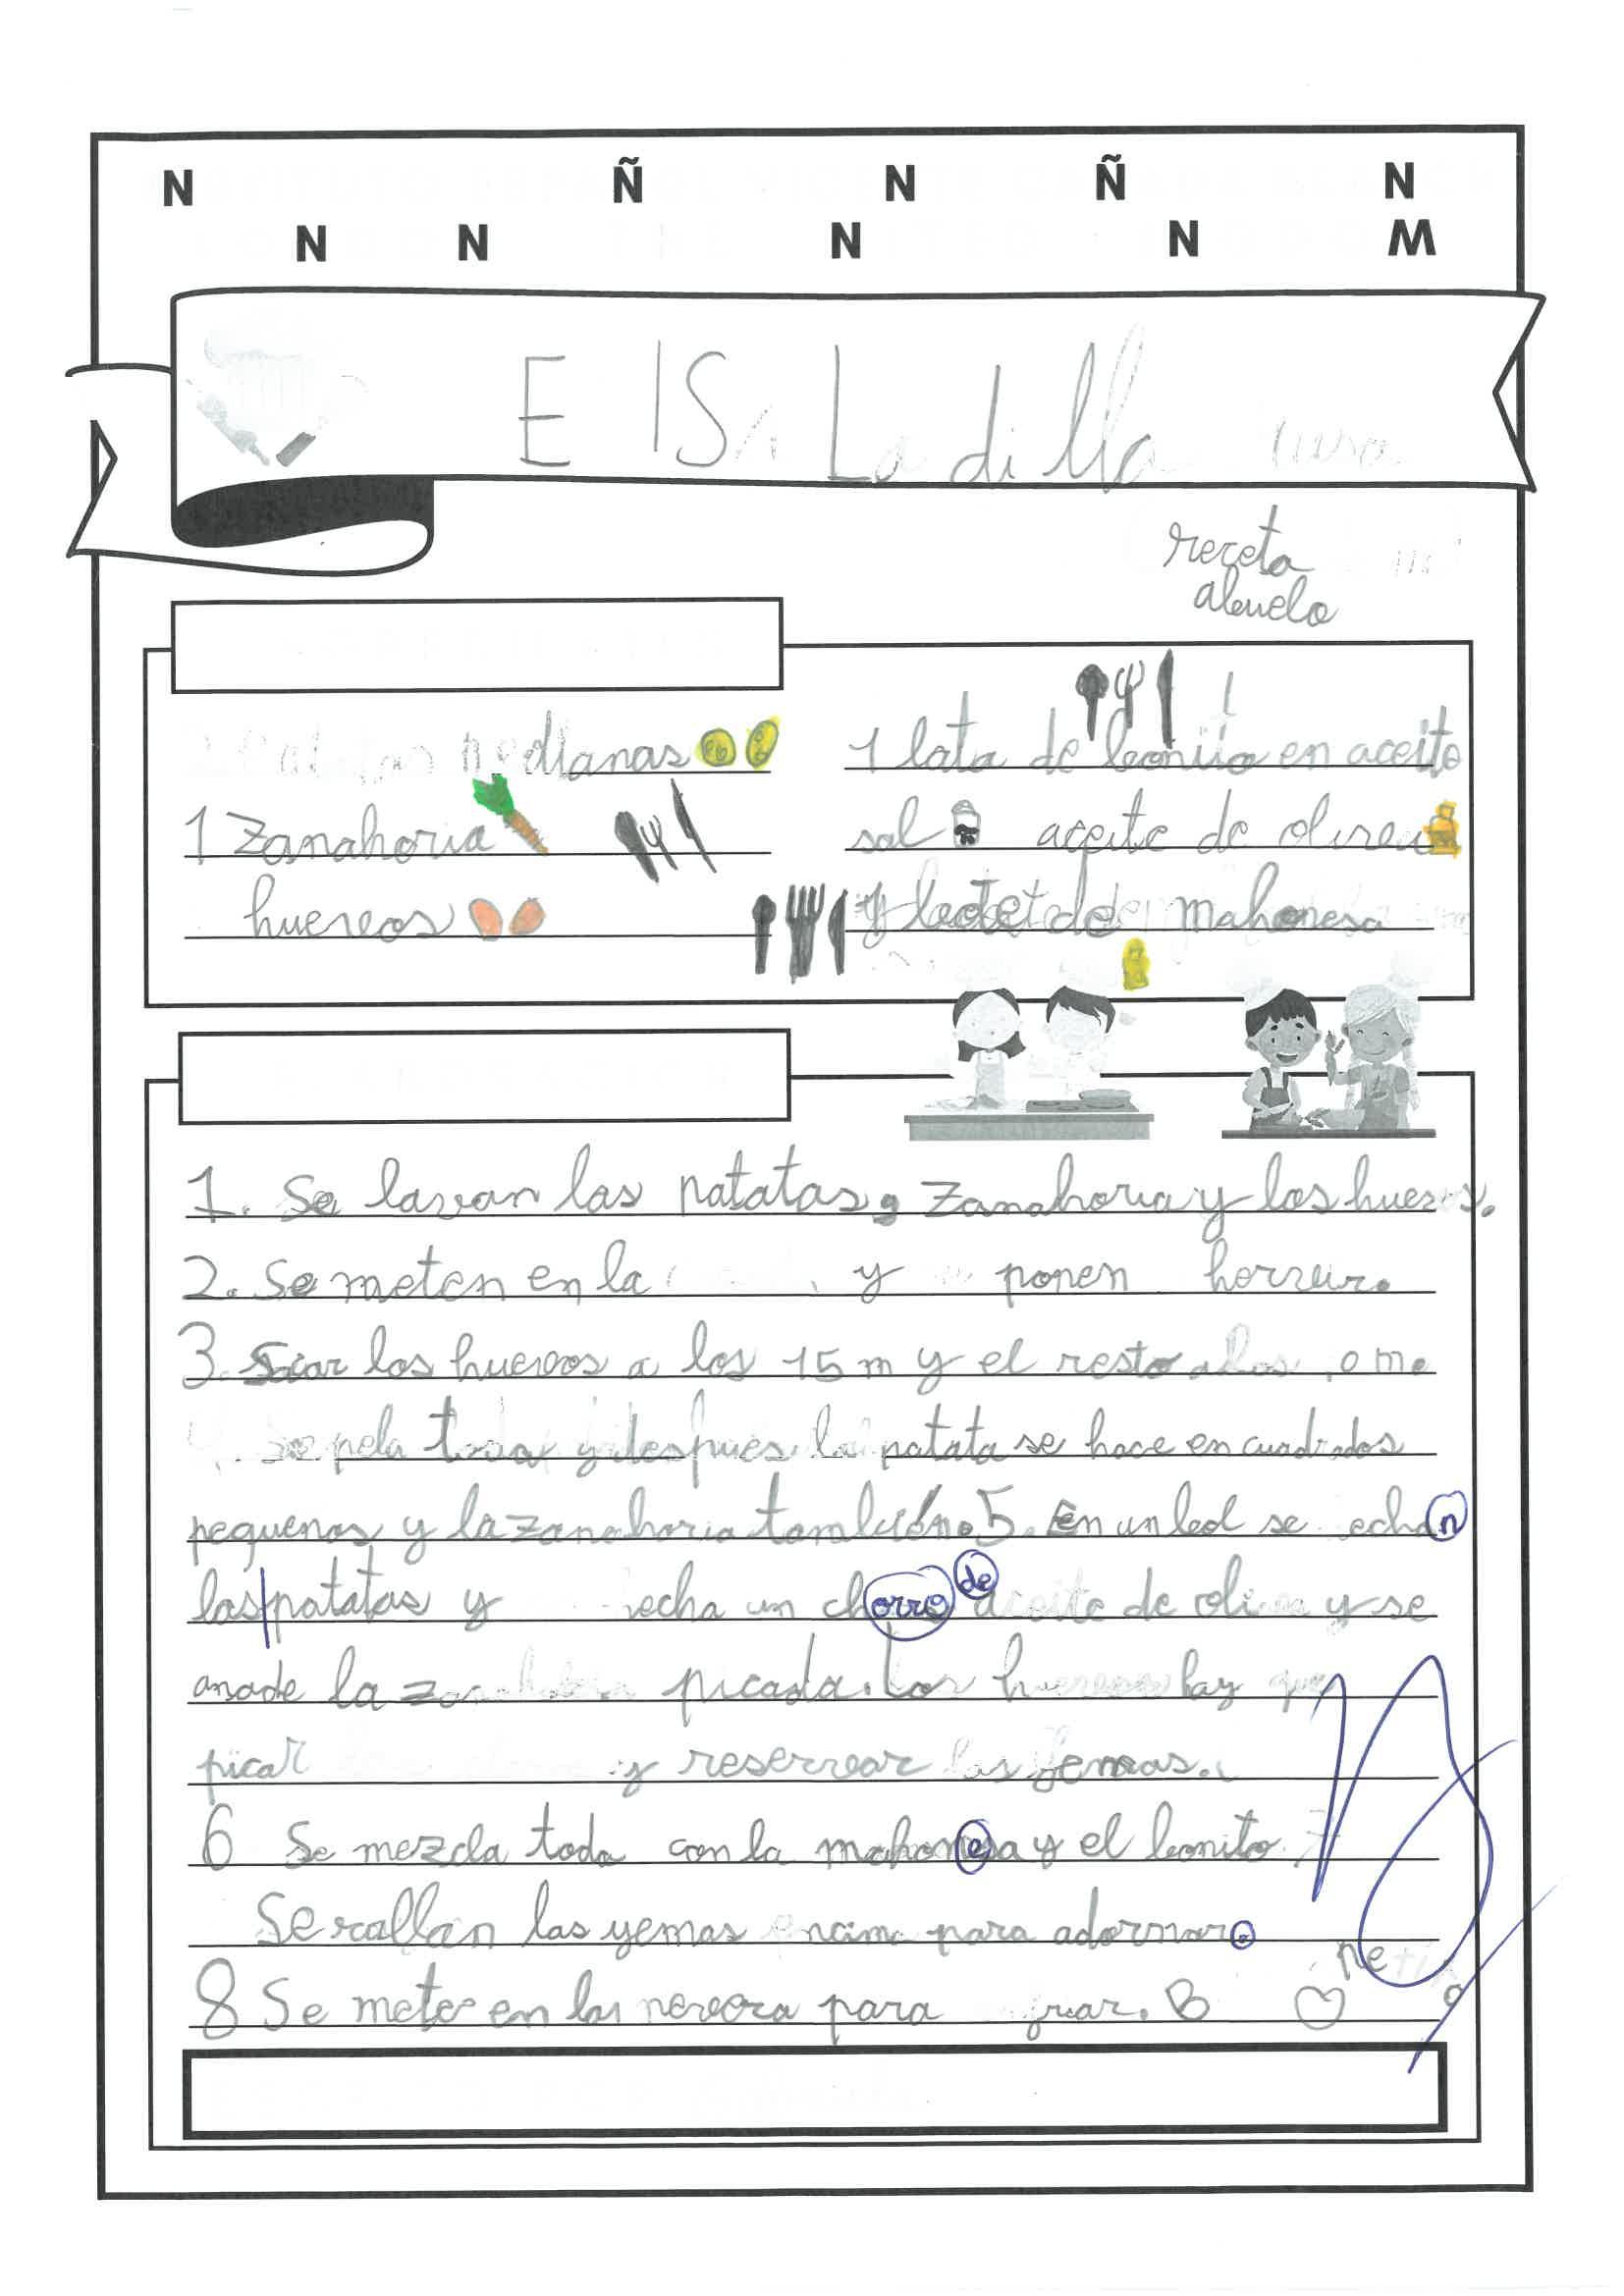 N Ñ N Ñ N
N N N N M
E lSa Ladilla rusa
receta
abuelo
2 Patatas medianas
1 lata de bonito en aceite
1 zanahoria
sal aceite de oliva
huevos
y bote de mahonesa
1. Se lavan las patatas, zanahoria y los huevos.
2. Se meten en la y ponen herrvir.
3. Sacar los huevos a los 15 m y el resto a los
4. Se pela todo y después la patata se hace en cuadrados
pequenos y la zanahoria también. 5. En un bol se echan
las|patatas y hecha un chorro de aceite de oliva y se
anade la zanahoria picada. Los huevos hay que
picar y reservar las yemas.
6 Se mezcla todo con la mahonesa y el bonito. 7
Se rallan las yemas encima para adornar.
8 Se mete en la nevera para